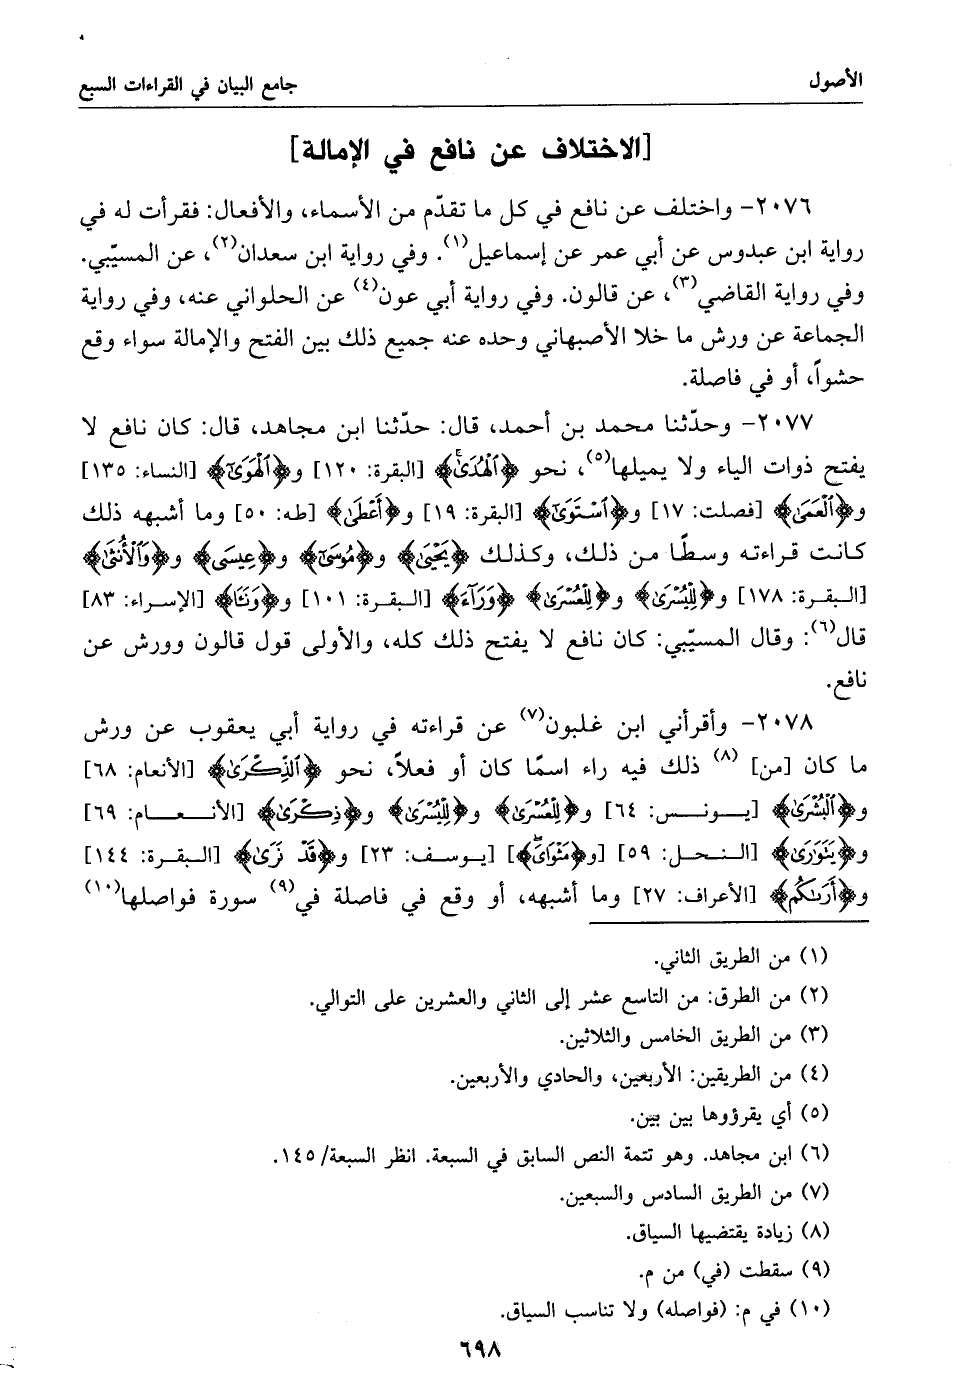 الأصول
جامع البيان في القراءات السبع
[الاختلاف عن نافع في الإمالة]
٢٠٧٦- واختلف عن نافع في كل ما تقدّم من الأسماء، والأفعال: فقرأت له في
رواية ابن عبدوس عن أبي عمر عن إسماعيل(١). وفي رواية ابن سعدان(٢)، عن المسيّبي.
وفي رواية القاضي(٣)، عن قالون. وفي رواية أبي عون(٤) عن الحلواني عنه، وفي رواية
الجماعة عن ورش ما خلا الأصبهاني وحده عنه جميع ذلك بين الفتح والإمالة سواء وقع
حشواً، أو في فاصلة.
٢٠٧٧- وحدّثنا محمد بن أحمد، قال: حدّثنا ابن مجاهد، قال: كان نافع لا
يفتح ذوات الياء ولا يميلها(٥)، نحو ﴿ٱلْهُدَىٰ﴾ [البقرة: ١٢٠] و﴿ٱلْهَوَىٰٓ﴾ [النساء: ١٣٥]
و﴿ٱلْعَمَىٰ﴾ [فصلت: ١٧] و﴿ٱسْتَوَىٰٓ﴾ [البقرة: ١٩] و﴿أَعْطَىٰ﴾ [طه: ٥٠] وما أشبهه ذلك
كانت قراءته وسطًا من ذلك، وكذلك ﴿يَحْيَىٰ﴾ و﴿مُوسَىٰٓ﴾ و﴿عِيسَى﴾ و﴿وَٱلْأُنثَىٰ﴾
[البقرة: ١٧٨] و﴿لِلْيُسْرَىٰ﴾ و﴿لِلْعُسْرَىٰ﴾ ﴿وَرَآءَ﴾ [البقرة: ١٠١] و﴿وَنَـَٔا﴾ [الإسراء: ٨٣]
قال(٦): وقال المسيّبي: كان نافع لا يفتح ذلك كله، والأولى قول قالون وورش عن
نافع.
٢٠٧٨- وأقرأني ابن غلبون(٧) عن قراءته في رواية أبي يعقوب عن ورش
ما كان [من] (٨) ذلك فيه راء اسمًا كان أو فعلاً، نحو ﴿ٱلذِّكْرَىٰ﴾ [الأنعام: ٦٨]
و﴿ٱلْبُشْرَىٰ﴾ [يونس: ٦٤] و﴿لِلْعُسْرَىٰ﴾ و﴿لِلْيُسْرَىٰ﴾ و﴿ذِكْرَىٰ﴾ [الأنعام: ٦٩]
و﴿يَتَوَٰرَىٰ﴾ [النحل: ٥٩] [و﴿مَثْوَاىَ﴾] [يوسف: ٢٣] و﴿قَدْ نَرَىٰ﴾ [البقرة: ١٤٤]
و﴿أَرَىٰكُم﴾ [الأعراف: ٢٧] وما أشبهه، أو وقع في فاصلة في(٩) سورة فواصلها(١٠)
(١) من الطريق الثاني.
(٢) من الطرق: من التاسع عشر إلى الثاني والعشرين على التوالي.
(٣) من الطريق الخامس والثلاثين.
(٤) من الطريقين: الأربعين، والحادي والأربعين.
(٥) أي يقرؤوها بين بين.
(٦) ابن مجاهد. وهو تتمة النص السابق في السبعة. انظر السبعة/ ١٤٥.
(٧) من الطريق السادس والسبعين.
(٨) زيادة يقتضيها السياق.
(٩) سقطت (في) من م.
(١٠) في م: (فواصله) ولا تناسب السياق.
٦٩٨